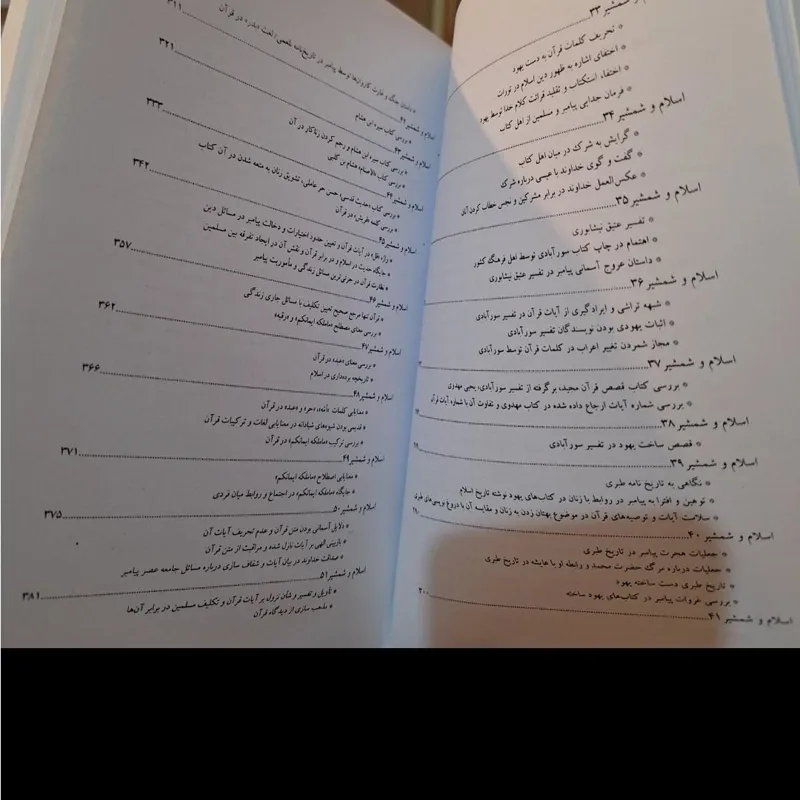 اسلام و شمشیر ۳۳
* تحریف کلمات قرآن به دست یهود
* اختفای اشاره به ظهور دین اسلام در تورات
* اختفا، استکتاب و تقلید قرائت کلام خدا توسط یهود
* فرمان جدایی پیامبر و مسلمین از اهل کتاب
اسلام و شمشیر ۳۴
* گرایش به شرک در میان اهل کتاب
* گفت و گوی خداوند با عیسی درباره شرک
* عکس‌العمل خداوند در برابر مشرکین و نجس خطاب کردن آنان
اسلام و شمشیر ۳۵
* تفسیر عتیق نیشابوری
* اهتمام در چاپ کتاب سورآبادی توسط اهل فرهنگ کشور
* داستان عروج آسمانی پیامبر در تفسیر عتیق نیشابوری
اسلام و شمشیر ۳۶
* شبهه تراشی و ایرادگیری از آیات قرآن در تفسیر سورآبادی
* اثبات یهودی بودن نویسندگان تفسیر سورآبادی
* مجاز شمردن تغییر اعراب در کلمات قرآن توسط سورآبادی
اسلام و شمشیر ۳۷
* بررسی کتاب قصص قرآن مجید، برگرفته از تفسیر سورآبادی، یحیی مهدوی
* بررسی شماره آیات ارجاع داده شده در کتاب مهدوی و تفاوت آن با شماره آیات قرآن
اسلام و شمشیر ۳۸
* قصص ساخت یهود در تفسیر سورآبادی
اسلام و شمشیر ۳۹
* نگاهی به تاریخ نامه طبری
* توهین و افترا به پیامبر در روابط با زنان در کتاب‌های یهود نوشته تاریخ اسلام
* سلامت آیات و توصیه‌های قرآن در موضوع بهتان زدن به زنان و مقایسه آن با دروغ نویسی‌های طبری
اسلام و شمشیر ۴۰
* جعلیات هجرت پیامبر در تاریخ طبری
* جعلیات درباره مرگ حضرت محمد و رابطه او با عایشه در تاریخ طبری
* تاریخ طبری دست ساخته یهود
* بررسی غزوات پیامبر در کتاب‌های یهود ساخته
اسلام و شمشیر ۴۱ ۲۰۰
* داستان جنگ و غارت کاروان‌ها توسط پیامبر در تاریخ‌نامه بلعمی؛ لغت «بدر» در قرآن
اسلام و شمشیر ۴۲ ۳۱۱
* بررسی کتاب سیره ابن هشام
اسلام و شمشیر ۴۳ ۳۲۱
* بررسی کتاب سیره ابن هشام و رجم کردن زناکار در آن
* بررسی کتاب «الاصنام» هشام بن کلبی
اسلام و شمشیر ۴۴ ۳۳۳
* بررسی کتاب «حدیث قدسی» حسن حر عاملی، تشویق زنان به متعه شدن در آن کتاب
* بررسی کلمه «قریش» در قرآن
اسلام و شمشیر ۴۵ ۳۴۲
* واژه «قل» در آیات قرآن و تعیین حدود اختیارات و دخالت پیامبر در مسائل دین
* جایگاه حدیث در اسلام و در برابر قرآن و نقش آن در ایجاد تفرقه بین مسلمین
* نظارت قرآن در جزئی‌ترین مسائل زندگی و مأموریت پیامبر
اسلام و شمشیر ۴۶ ۳۵۷
* قرآن تنها مرجع صحیح تعیین تکلیف با مسائل جاری زندگی
* بررسی معنای مصطلح «ماملکه ایمانکم» و «رقبه»
اسلام و شمشیر ۴۷ ۳۶۲
* بررسی معنای «عبد» در قرآن
* تاریخچه برده‌داری در اسلام
اسلام و شمشیر ۴۸ ۳۶۶
* معنایابی کلمات «أمه»، «حر» و «عبد» در قرآن
* قدیمی بودن شیوه‌های شیادانه در معنایابی لغات و ترکیبات قرآن
* بررسی ترکیب «ماملکه ایمانکم» در قرآن
اسلام و شمشیر ۴۹ ۳۷۱
* معنایابی اصطلاح «ماملکه ایمانکم»
* جایگاه «ماملکه ایمانکم» در اجتماع و روابط میان فردی
اسلام و شمشیر ۵۰ ۳۷۵
* دلایل آسمانی بودن متن قرآن و عدم تحریف آیات آن
* بازبینی الهی بر آیات نازل شده و مراقبت از متن قرآن
* صداقت خداوند در بیان آیات و شفاف سازی درباره مسائل جامعه عصر پیامبر
اسلام و شمشیر ۵۱ ۳۸۱
* تأویل و تفسیر و شأن نزول بر آیات قرآن و تکلیف مسلمین در برابر آن‌ها
* مذهب سازی از دیدگاه قرآن